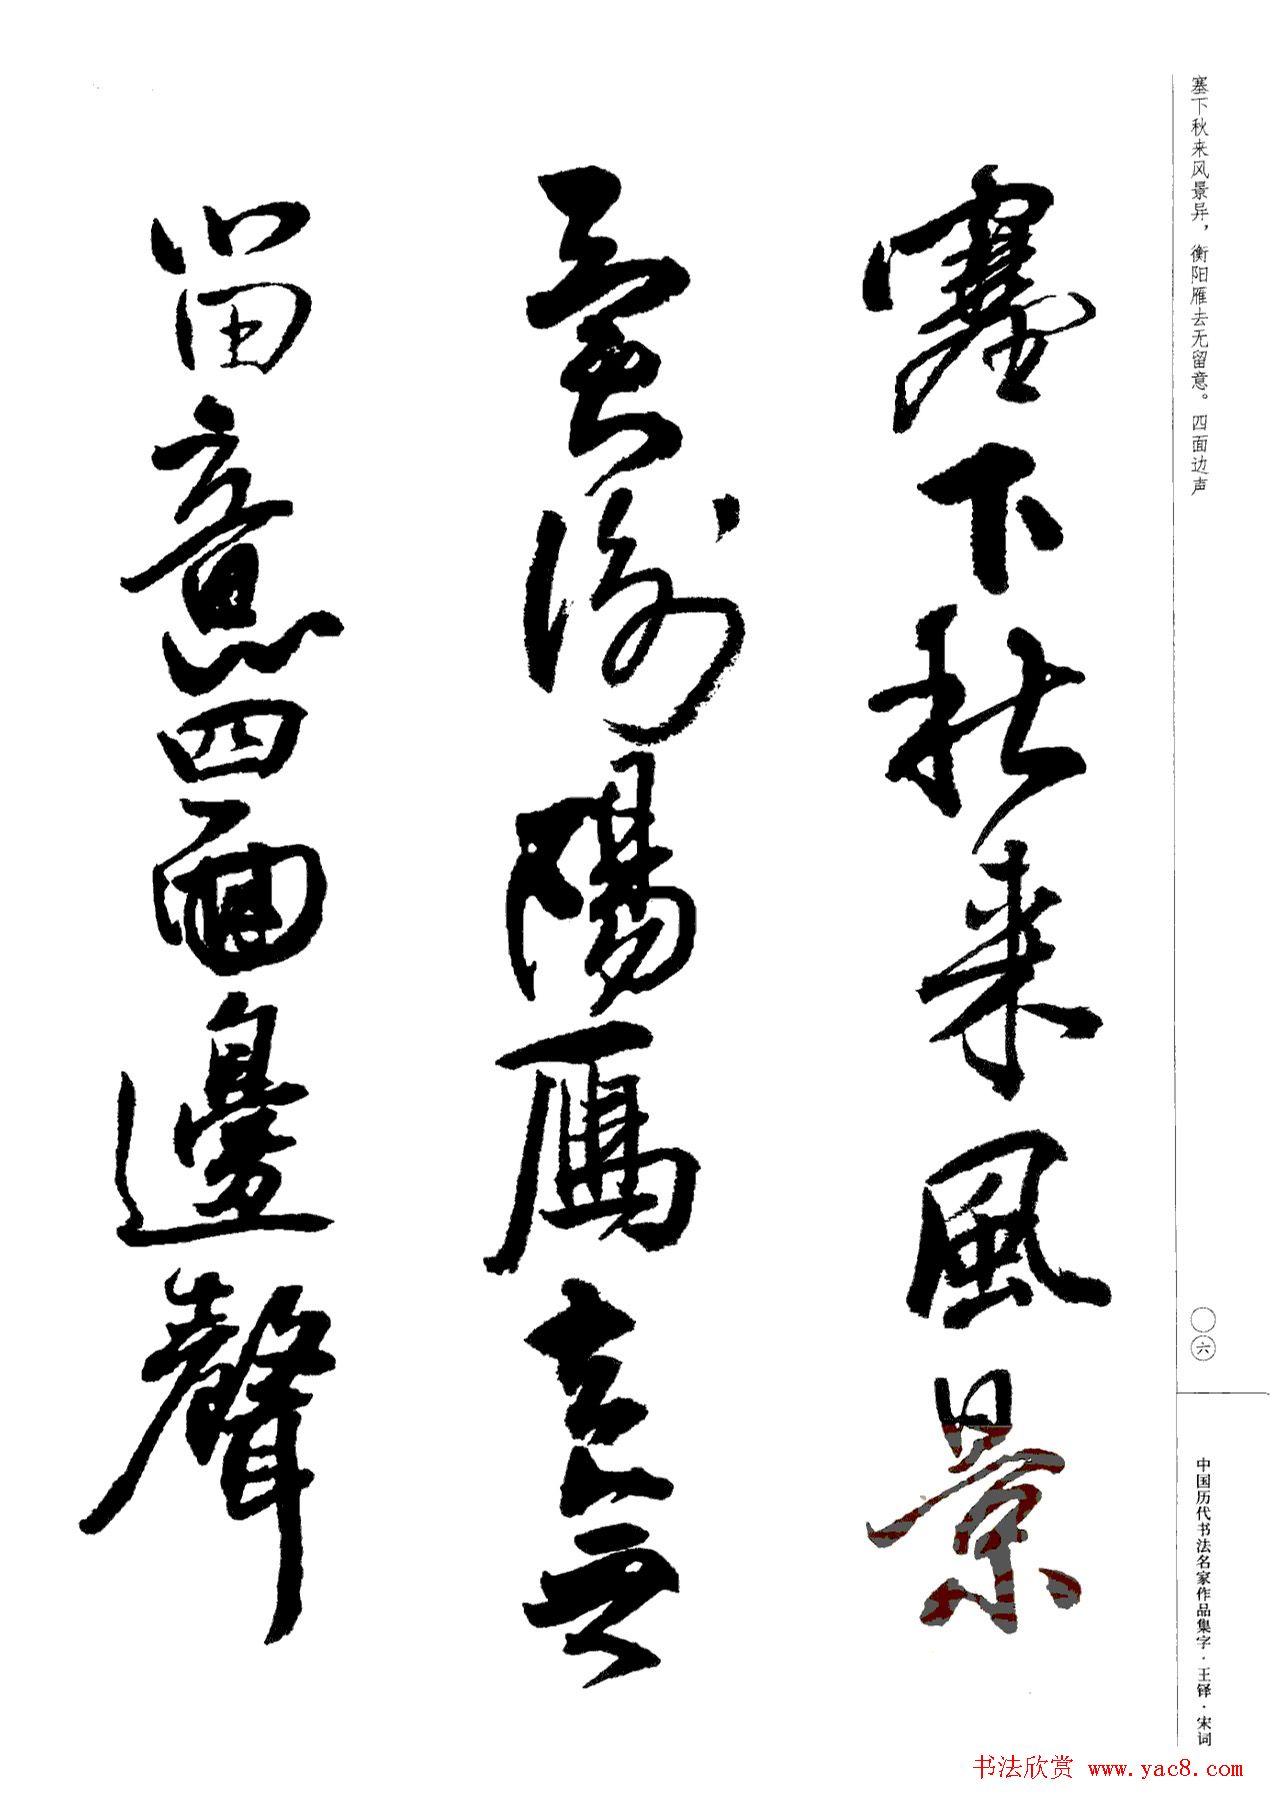 塞下秋来风景异，衡阳雁去无留意。四面边声
塞下秋来風景
異衡陽鴈去無
留意四面邊聲
〇六
中国历代书法名家作品集字·王铎·宋词
书法欣赏 www.yac8.com